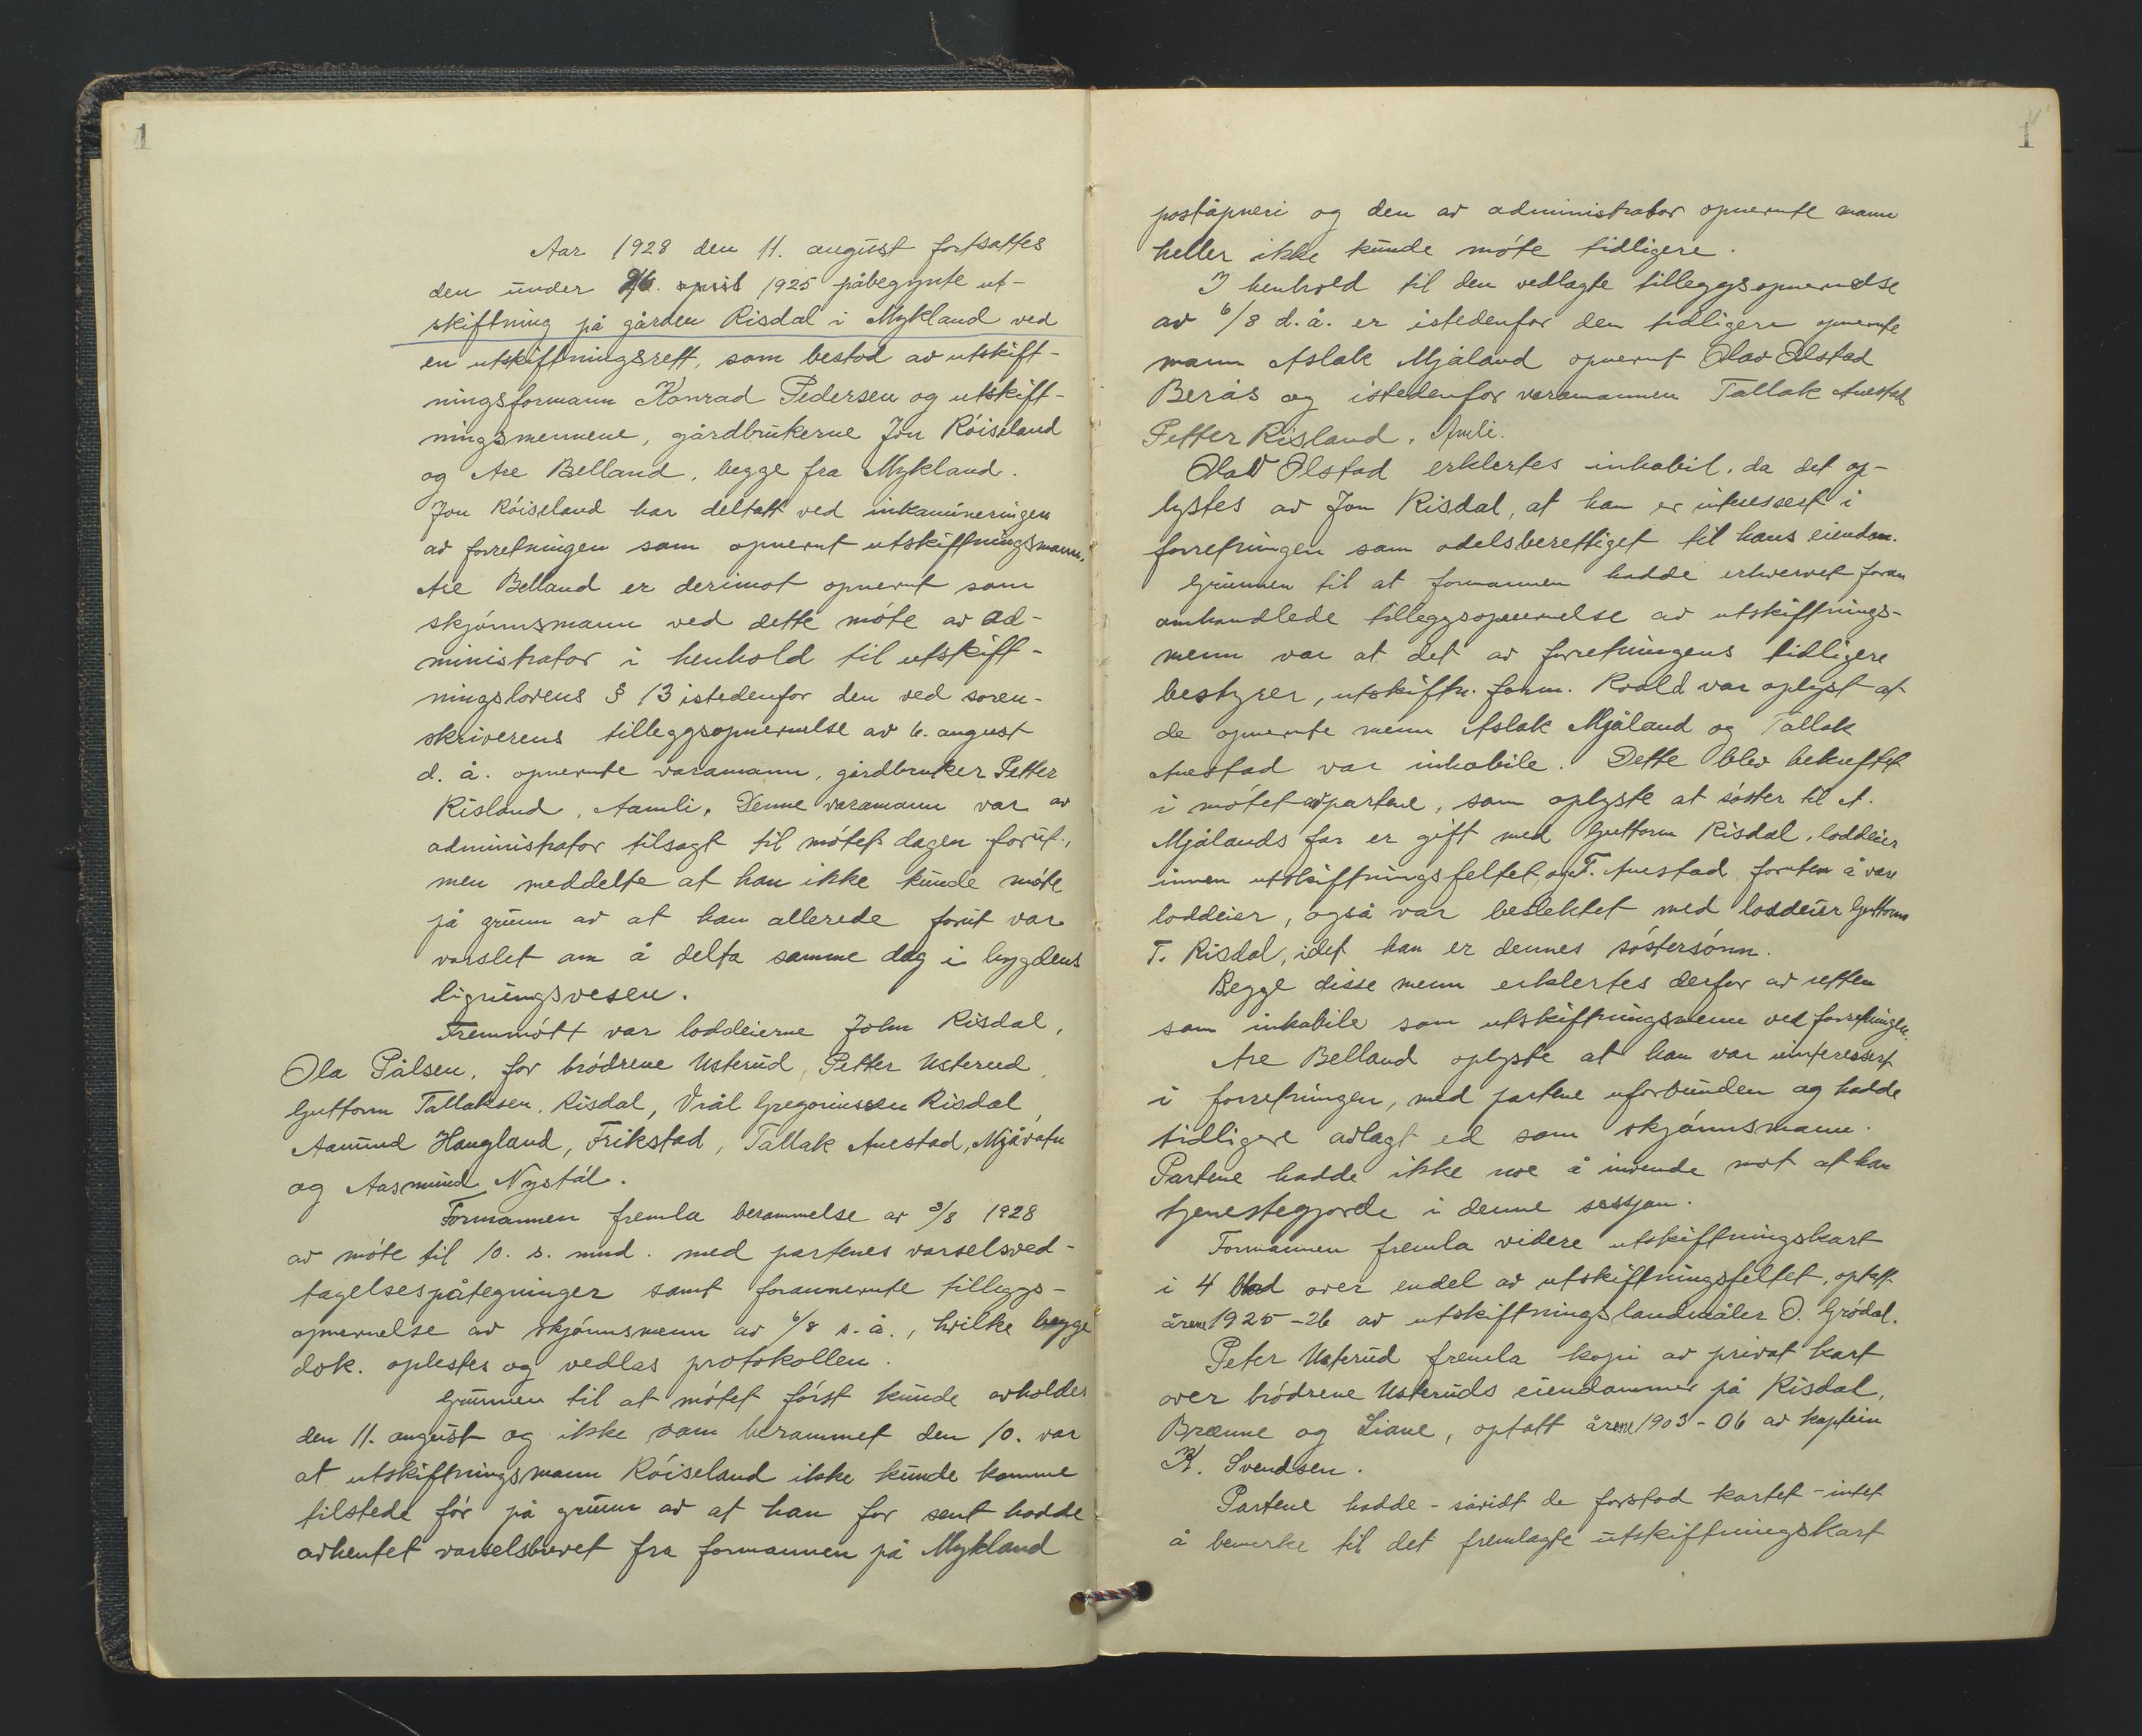 1
Aar 1928 den 11. august fortsattes
den under 26. april 1925 påbegynte ut-
skiftning på gården Risdal i Mykland ved
en utskiftningsrett, som bestod av utskift-
ningsformann Konrad Pedersen og utskift-
ningsmennene, gårdbrukerne Jon Róiseland
og Are Belland, begge fra Mykland.
Jon Róiseland har deltatt ved inkamineringen
av forretningen som opnevnt utskiftningsmann,
Are Belland er derimot opnevnt som
skjónnsmann ved dette móte av ad-
ministrator i henhold til utskift-
ningslovens § 13 istedenfor den ved soren-
skriverens tilleggsopnevnelse av 6. august
d. å. opnevnte varamann, gårdbruker Petter
Risland, Aamli. Denne varamann var av
administrator tilsagt til mótet dagen forut,
men meddelte at han ikke kunde móte
på grunn av at han allerede forut var
varslet om å delta samme dag i bygdens
ligningsvesen.
Fremmótt var loddeierne John Risdal,
Ola Pålsen, for bródrene Usterud, Petter Usterud,
Guttorm Tallaksen Risdal, Vrål Gregoriussen Risdal,
Aamund Haugland, Frikstad, Tallak Auestad, Mjåvatn
og Aasmund Nystól.
Formannen fremla berammelse av 3/8 1928
av móte til 10. s. mnd. med partenes varselsved-
tagelsespåtegninger samt forannevnte tilleggs-
opnevnelse av skjónnsmenn av 6/8 s. å., hvilke begge
dok. oplestes og vedlas protokollen.
Grunnen til at mótet fórst kunde avholdes
den 11. august og ikke som berammet den 10. var
at utskiftningsmann Róiseland ikke kunde komme
tilstede fór på grunn av at han for sent hadde
avhentet varselsbrevet fra formannen på Mykland
1
poståpneri og den av administrator opnevnte mann
heller ikke kunde móte tidligere.
I henhold til den vedlagte tilleggsopnevndse
av 6/8 d. å. er istedenfor den tidligere opnevnte
mann Aslak Mjåland opnevnt Olav Ølstad
Berås og istedenfor varamannen Tallak Auestad
Petter Risland, Åmli.
Olav Ølstad erklertes inhabil, da det op-
lystes av Jon Risdal, at han er interessert i
forretningen som odelsberettiget til hans eiendom.
Grunnen til at formannen hadde erhvervet foran
omhandlede tilleggsopnevnelse av utskiftnings-
menn var at det av forretningens tidligere
bestyrer, utskiftn. form. Roald var oplyst at
de opnevnte menn Aslak Mjåland og Tallak
Auestad var inhabile. Dette blev bekreftet
i mótet av partene, som oplyste at sóster til A.
Mjålands far er gift med Guttorm Risdal, loddeier
innen utskiftningsfeltet, og T. Auestad foruten å vare
loddeier, også var beslektet med loddeier Guttorm
T. Risdal, idet han er dennes sóstersónn.
Begge disse menn erklertes derfor av retten
som inhabile som utskiftningsmenn ved forretningen.
Are Belland oplyste at han var uinteressert
i forretningen, med partene uforbunden og hadde
tidligere avlagt ed som skjónnsmann.
Partene hadde ikke noe å invende mot at han
tjenestegjorde i denne sessjon.
Formannen fremla videre utskiftningskart
i 4 blad over endel av utskiftningsfeltet, optatt
årene 1925-26 av utskiftningslandmåler O. Gródal.
Peter Usterud fremla kopi av privat kart
over bródrene Usteruds eiendommer på Risdal,
Brænne og Liane, optatt årene 1903-06 av kaptein
K. Svendsen.
Partene hadde - såvidt de forstod kartet - intet
å bemerke til det fremlagte utskiftningskart